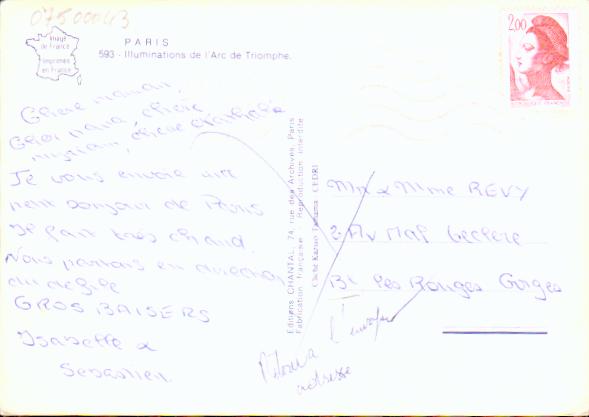 07500043
Image
de France
Imprimée
en France
PARIS
593 - Illuminations de l'Arc de Triomphe.
2,00
Chère maman,
Cher papa, chère
chère
Je vous envoie un
petit bonjour de Paris
Il fait très chaud.
Nous partons en direction
du
GROS BAISERS
Isabelle &
Sébastien.
Editions CHANTAL, 74, rue des Archives, Paris
Fabrication française - Reproduction interdite
Cliché Kazuo CEDRI
Mr & Mme REVY
2 Av Mal Leclerc
Bt Les Rouges Gorges
Retour à l'envoyeur
adresse